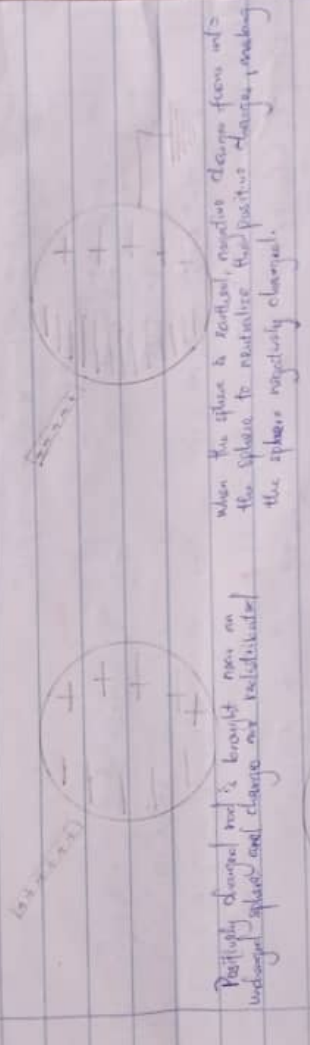 Positively charged rod is brought near an
uncharged sphere and charges are redistributed
when the sphere is earthed, negative charges from into
the sphere to neutralize the positive charges, making
the sphere negatively charged.